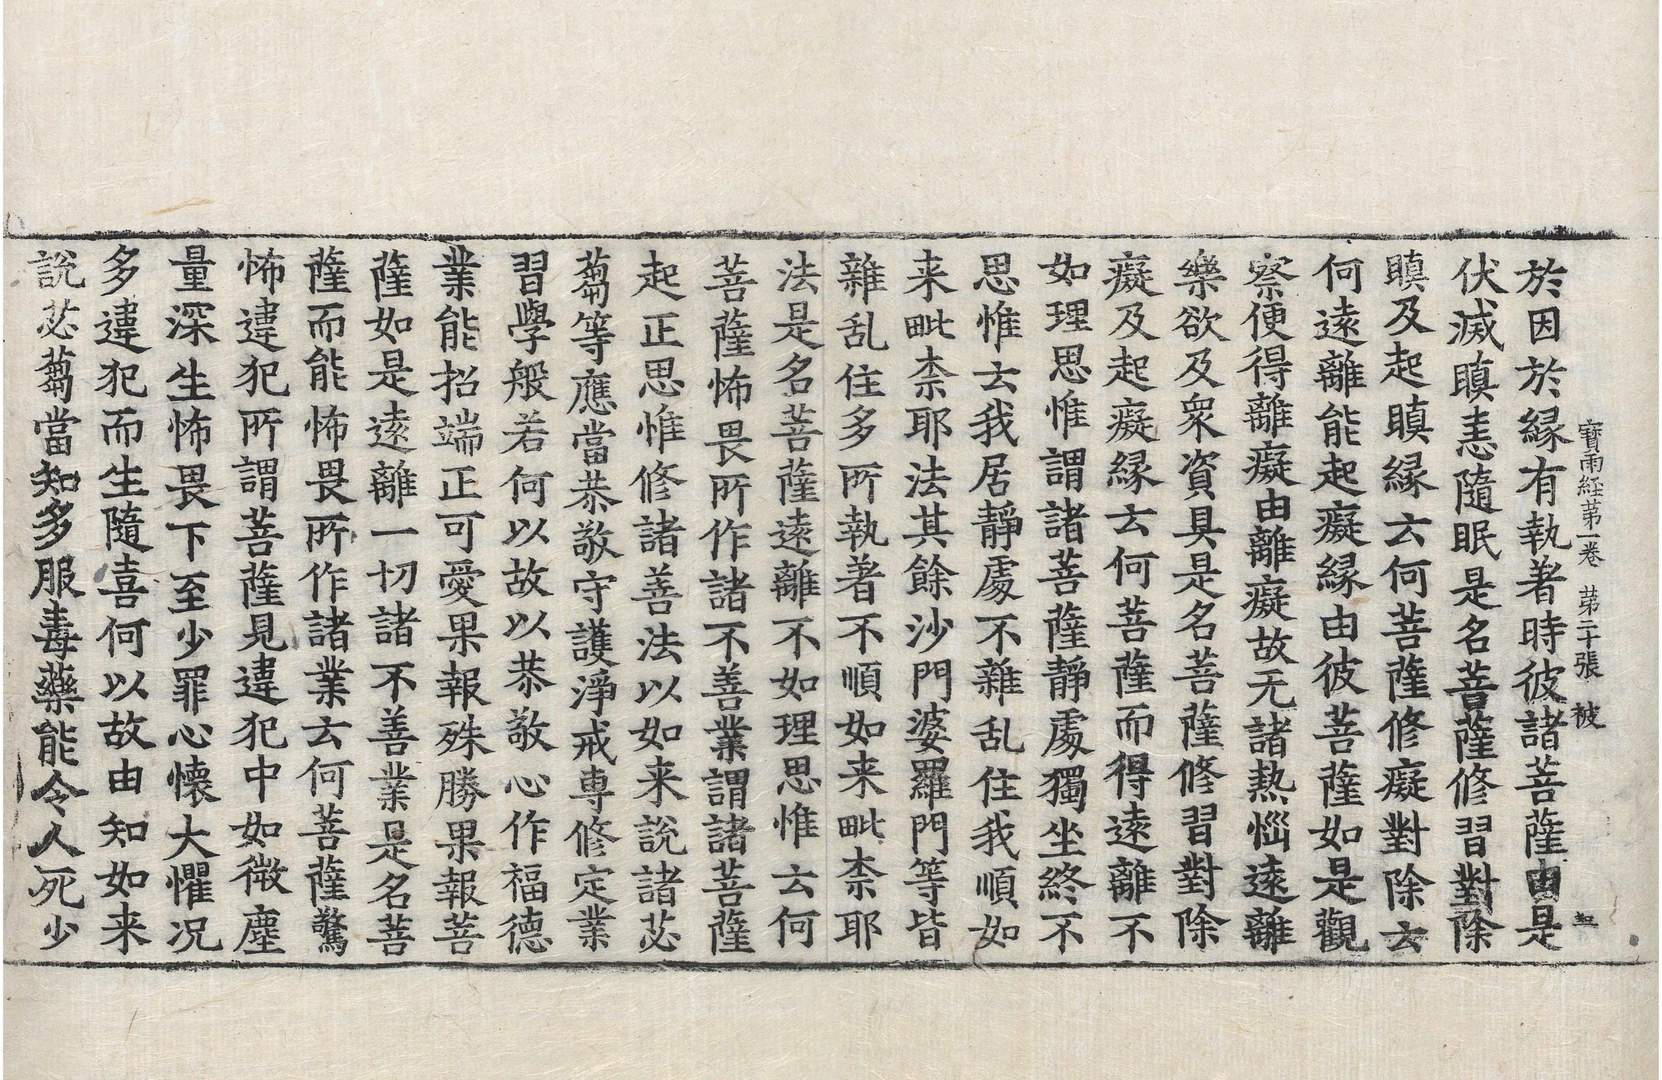 寳雨経苐一卷　苐二十張　被
於因於縁有執著時彼諸菩薩由是
伏滅瞋恚隨眠是名菩薩修習對除
瞋及起瞋縁云何菩薩修癡對除云
何遠離能起癡縁由彼菩薩如是觀
察便得離癡由離癡故无諸熱惱遠離
樂欲及衆資具是名菩薩修習對除
癡及起癡縁云何菩薩而得遠離不
如理思惟謂諸菩薩静處獨坐終不
思惟云我居静處不雜乱住我順如
来毗柰耶法其餘沙門婆羅門等皆
雜乱住多所執著不順如来毗柰耶
法是名菩薩遠離不如理思惟云何
菩薩怖畏所作諸不善業謂諸菩薩
起正思惟修諸善法以如来說諸苾
蒭等應當恭敬守護淨戒専修定業
習學般若何以故以恭敬心作福德
業能招端正可愛果報殊勝果報菩
薩如是遠離一切諸不善業是名菩
薩而能怖畏所作諸業云何菩薩驚
怖違犯所謂菩薩見違犯中如微塵
量深生怖畏下至少罪心懷大懼况
多違犯而生隨喜何以故由知如来
說苾蒭當知多服毒藥能令人死少